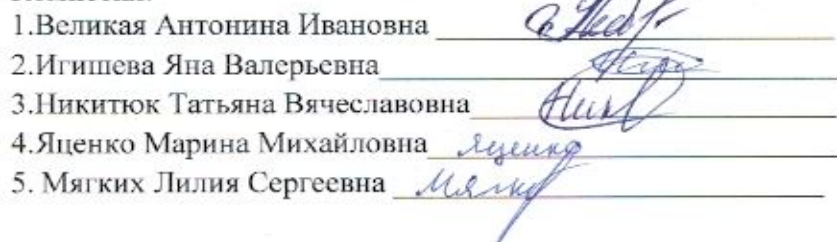 1.Великая Антонина Ивановна
2.Игишева Яна Валерьевна
3.Никитюк Татьяна Вячеславовна
4.Яценко Марина Михайловна Яценко
5. Мягких Лилия Сергеевна